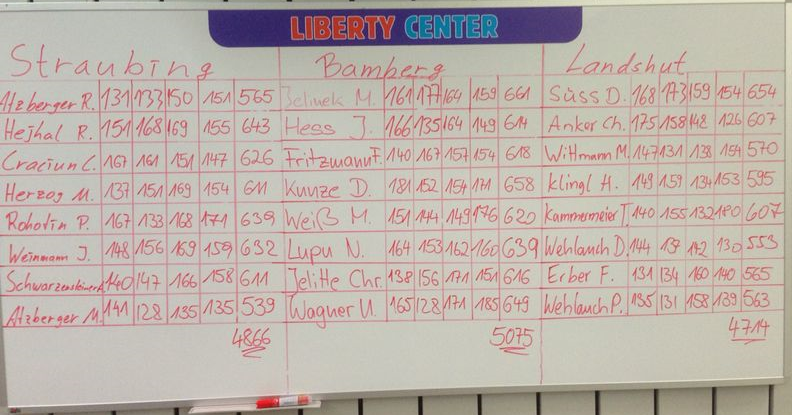 LIBERTY CENTER
Straubing Bamberg Landshut
Atzberger R. 131 133 150 151 565 Jelinek M. 161 177 164 159 661 Süss D. 168 173 159 154 654
Hejhal R. 151 168 169 155 643 Hess J. 166 135 164 149 614 Anker Ch. 175 158 148 126 607
Craciun C. 167 161 151 147 626 Fritzmann F. 140 167 157 154 618 Wittmann M. 147 131 138 154 570
Herzog M. 137 151 169 154 611 Kunze D. 181 152 154 171 658 Klingl H. 149 159 134 153 595
Rohotin P. 167 133 168 171 639 Weiß M. 151 144 149 176 620 Kammermeier T. 140 155 132 180 607
Weinmann J. 148 156 169 159 632 Lupu N. 164 153 162 160 639 Wehlauch D. 144 137 142 130 553
140 147 166 158 611 Jelitte Chr. 138 156 171 151 616 Erber F. 131 134 160 140 565
Atzberger M. 141 128 135 135 539 Wagner U. 165 128 171 185 649 Wehlauch P. 135 131 158 139 563
4866 5075 4714